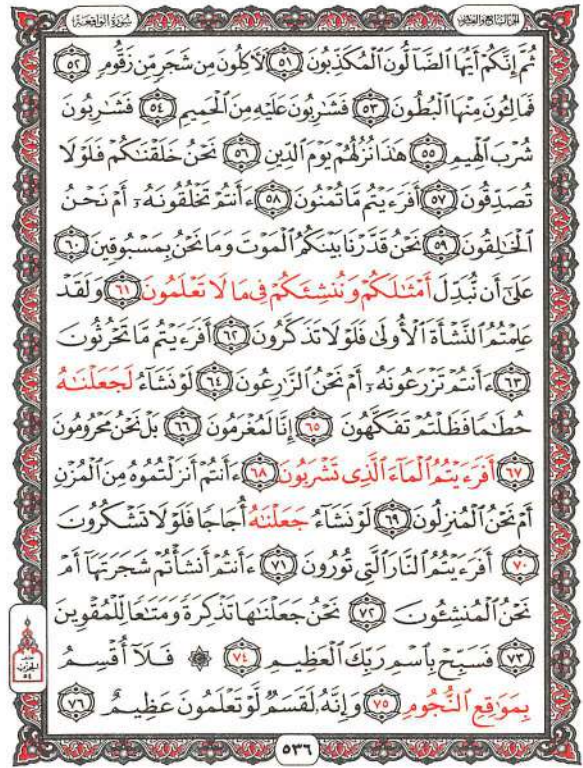 الجزء السابع والعشرون
سُورَةُ الوَاقِعَة
ثُمَّ إِنَّكُمْ أَيُّهَا ٱلضَّآلُّونَ ٱلْمُكَذِّبُونَ ٥١ لَأَكِلُونَ مِن شَجَرٍ مِّن زَقُّومٍ ٥٢
فَمَالِـُٔونَ مِنْهَا ٱلْبُطُونَ ٥٣ فَشَٰرِبُونَ عَلَيْهِ مِنَ ٱلْحَمِيمِ ٥٤ فَشَٰرِبُونَ
شُرْبَ ٱلْهِيمِ ٥٥ هَٰذَا نُزُلُهُمْ يَوْمَ ٱلدِّينِ ٥٦ نَحْنُ خَلَقْنَٰكُمْ فَلَوْلَا
تُصَدِّقُونَ ٥٧ أَفَرَءَيْتُم مَّا تُمْنُونَ ٥٨ ءَأَنتُمْ تَخْلُقُونَهُۥٓ أَمْ نَحْنُ
ٱلْخَٰلِقُونَ ٥٩ نَحْنُ قَدَّرْنَا بَيْنَكُمُ ٱلْمَوْتَ وَمَا نَحْنُ بِمَسْبُوقِينَ ٦٠
عَلَىٰٓ أَن نُّبَدِّلَ أَمْثَٰلَكُمْ وَنُنشِئَكُمْ فِى مَا لَا تَعْلَمُونَ ٦١ وَلَقَدْ
عَلِمْتُمُ ٱلنَّشْأَةَ ٱلْأُولَىٰ فَلَوْلَا تَذَكَّرُونَ ٦٢ أَفَرَءَيْتُم مَّا تَحْرُثُونَ
٦٣ ءَأَنتُمْ تَزْرَعُونَهُۥٓ أَمْ نَحْنُ ٱلزَّٰرِعُونَ ٦٤ لَوْ نَشَآءُ لَجَعَلْنَٰهُ
حُطَٰمًا فَظَلْتُمْ تَفَكَّهُونَ ٦٥ إِنَّا لَمُغْرَمُونَ ٦٦ بَلْ نَحْنُ مَحْرُومُونَ
٦٧ أَفَرَءَيْتُمُ ٱلْمَآءَ ٱلَّذِى تَشْرَبُونَ ٦٨ ءَأَنتُمْ أَنزَلْتُمُوهُ مِنَ ٱلْمُزْنِ
أَمْ نَحْنُ ٱلْمُنزِلُونَ ٦٩ لَوْ نَشَآءُ جَعَلْنَٰهُ أُجَاجًا فَلَوْلَا تَشْكُرُونَ
٧٠ أَفَرَءَيْتُمُ ٱلنَّارَ ٱلَّتِى تُورُونَ ٧١ ءَأَنتُمْ أَنشَأْتُمْ شَجَرَتَهَآ أَمْ
نَحْنُ ٱلْمُنشِـُٔونَ ٧٢ نَحْنُ جَعَلْنَٰهَا تَذْكِرَةً وَمَتَٰعًا لِّلْمُقْوِينَ
٧٣ فَسَبِّحْ بِٱسْمِ رَبِّكَ ٱلْعَظِيمِ ٧٤ ۞ فَلَآ أُقْسِمُ
بِمَوَٰقِعِ ٱلنُّجُومِ ٧٥ وَإِنَّهُۥ لَقَسَمٌ لَّوْ تَعْلَمُونَ عَظِيمٌ ٧٦
الحزب
٥٤
٥٣٦